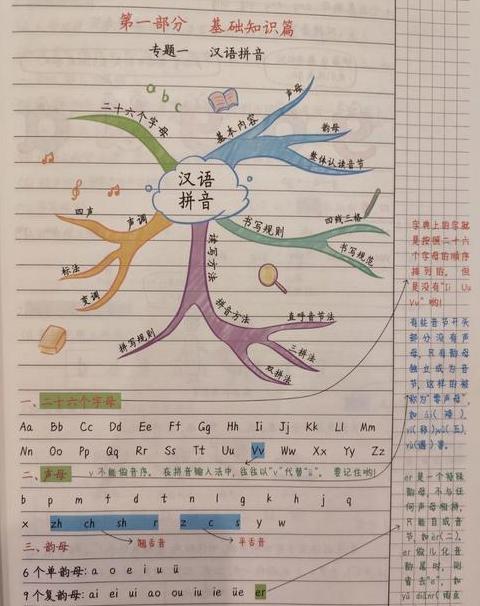 第一部分 基础知识篇
专题一 汉语拼音
a b c
二十六个字母
基本内容
声母
韵母
整体认读音节
汉语
拼音
四声
声调
标法
变调
书写规则
四线三格
书写规范
读写方法
拼音方法
直呼音节法
三拼法
双拼法
拼写规则
一、二十六个字母
Aa Bb Cc Dd Ee Ff Gg Hh Ii Jj Kk Ll Mm
Nn Oo Pp Qq Rr Ss Tt Uu Vv Ww Xx Yy Zz
二、声母 v不能做音序。在拼音输入法中，往往以"v"代替"ü"。要记住哟!
b p m f d t n l g k h j q
x zh ch sh r z c s y w
翘舌音 平舌音
三、韵母
6个单韵母: a o e i u ü
9个复韵母: ai ei ui ao ou iu ie üe er
字典上的字就
是按照二十六
个字母的顺序
排列的。但
是没有"Ii Uu
Vv"哟!
有些音节开头
部分没有声
母，只有韵母
独立成为音
节，这样的被
称为"零声母"，
er是一个特殊
韵母，不与任
何声母相拼，
只能自成音
节，如èr(二)。
er做儿化音
韵尾时，则
省去"e"，如